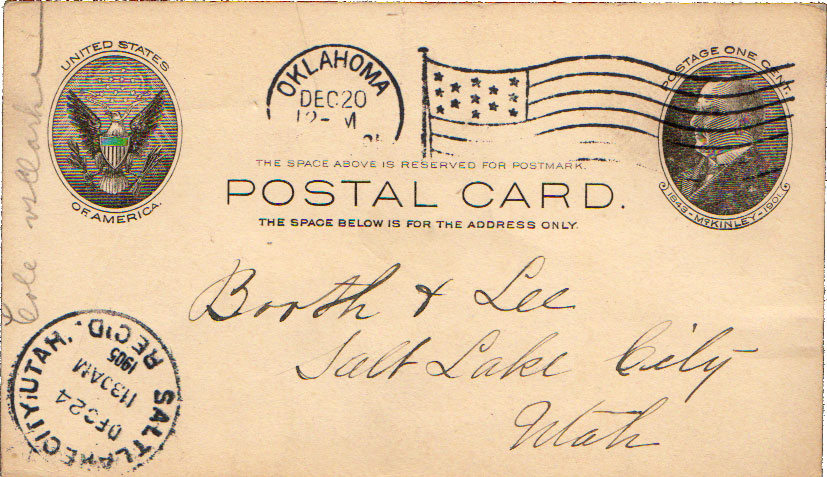 UNITED STATES
OF AMERICA.
OKLAHOMA
DEC 20
12- M
POSTAGE ONE CENT.
1843-McKINLEY-1901
THE SPACE ABOVE IS RESERVED FOR POSTMARK.
POSTAL CARD.
THE SPACE BELOW IS FOR THE ADDRESS ONLY.
Cole vs Clark
Booth & Lee
Salt Lake City
Utah
SALT LAKE CITY, UTAH.
REC'D
DEC 24
1130AM
1905